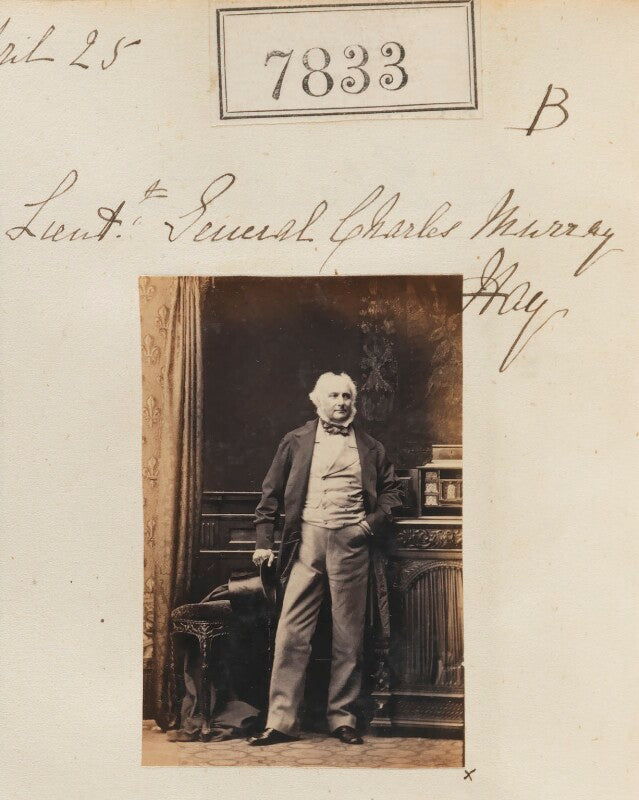 April 25
7833
B
Lieutt. General Charles Murray
Hay
x